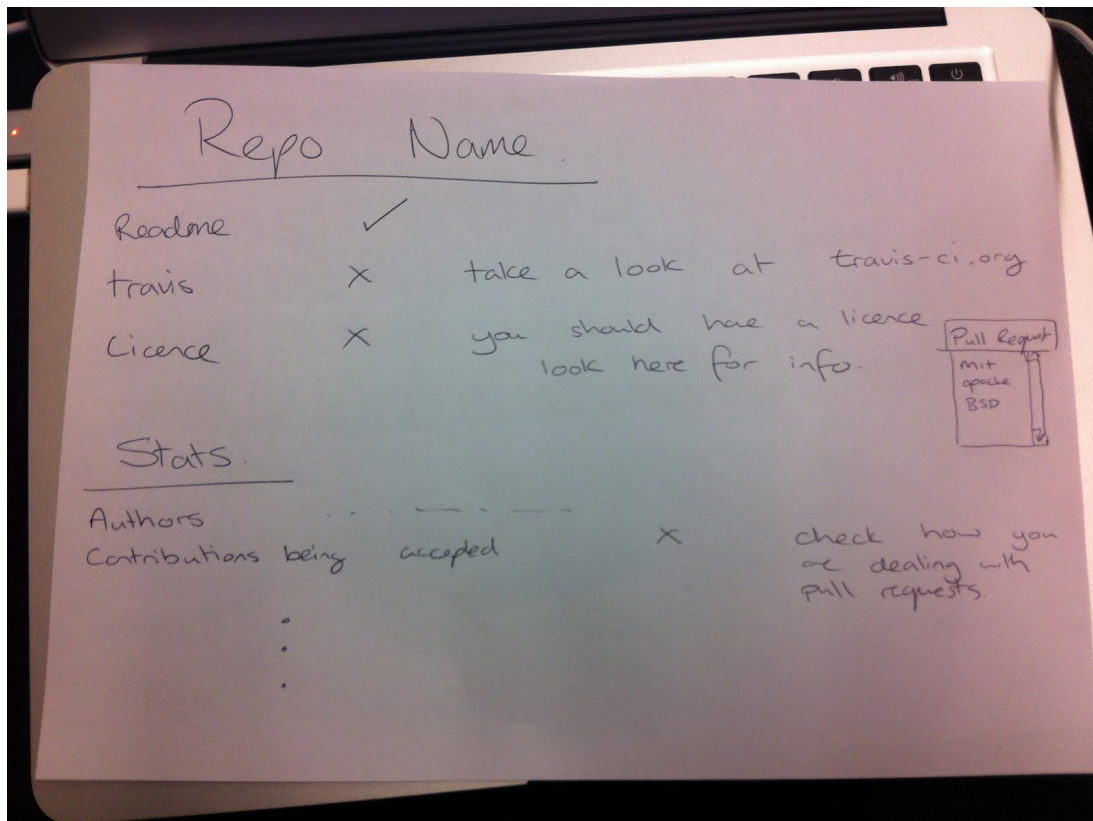 Repo Name.
Readme ✓
travis X take a look at travis-ci.org
Licence X you should have a licence
look here for info.
Pull Request
MIT
apache
BSD
Stats.
Authors
Contributions being accepted X check how you
are dealing with
pull requests.